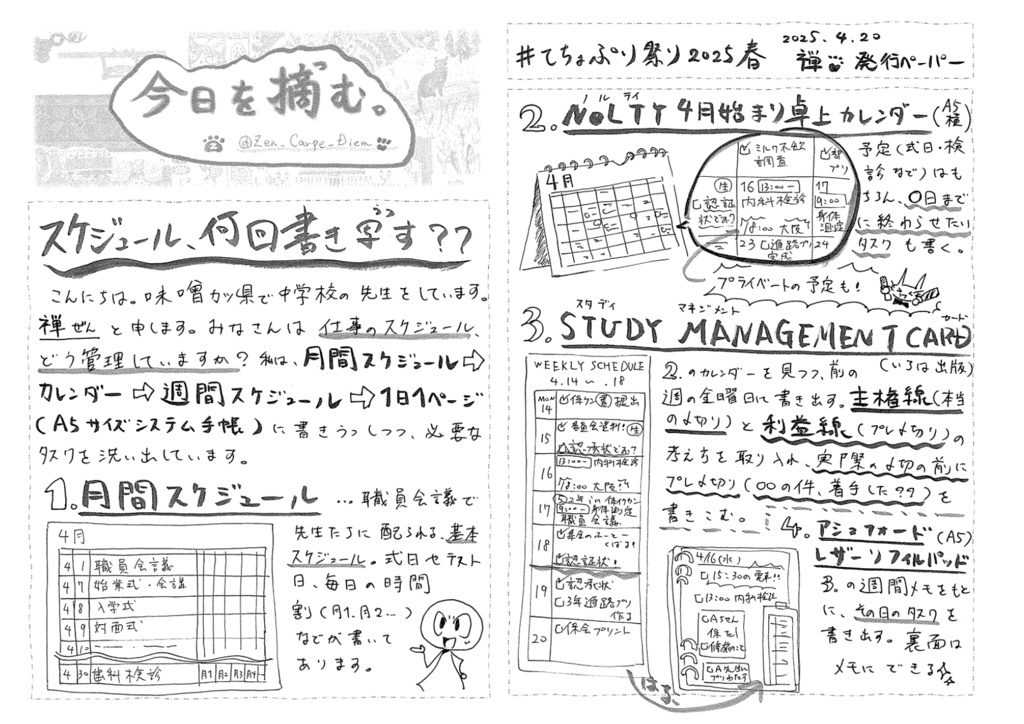 今日を摘む。
@Zen_Carpe_Diem
スケジュール、何回書き写す??
こんにちは。味噌カツ県で中学校の先生をしています。
禅ぜんと申します。みなさんは仕事のスケジュール、
どう管理していますか?私は、月間スケジュール⇨
カレンダー⇨週間スケジュール⇨1日1ページ
(A5サイズシステム手帳)に書きうつしつつ、必要な
タスクを洗い出しています。
1.月間スケジュール …職員会議で
先生たちに配られる、基本
スケジュール。式日やテスト
日、毎日の時間
割(月1.月2…)
などが書いて
あります。
4月
4 1 職員会議
4 7 始業式・会議
4 8 入学式
4 9 対面式
4 10
4 30 歯科検診 月1 月2 月3 月4
#てちょぷり祭り2025春
2025.4.20
禅 発行ペーパー
2. NOLTY 4月始まり卓上カレンダー(A5横)
ノルティ
4月
ミルク不飲
調査
16 13:00〜
内科検診
17
9:00〜
認証
状どお?
18:00 大阪
23 進路プリ 24
完成
予定(式日・検
診など)はも
ちろん、〇日まで
に終わらせたい
タスクも書く。
プライベートの予定も!
スタディ マネジメント カード
3. STUDY MANAGEMENT CARD
(いろは出版)
WEEKLY SCHEDULE
4.14 〜 .18
MON
14 提出
15
認証状どお?
16 13:00〜内科検診
18:00 大阪
17
9:00〜
職員会議
18
認証状!
19 認承状
3年進路プリ
作る
20 保会プリント
2.のカレンダーを見つつ、前の
週の金曜日に書き出す。主権線(本当
の〆切り)と利益線(プレ〆切り)の
考えちを取り入れ、実際の〆切の前に
プレ〆切り(〇〇の件、着手した??)を
書きこむ。
はる、
4. アシュフォード(A5)
レザーリフィルパッド
4/16(水)
15:30の電車!!
13:00 内科検診
Aさん
3.の週間メモをもと
に、その日のタスクを
書き出す。裏面は
メモにできる☆